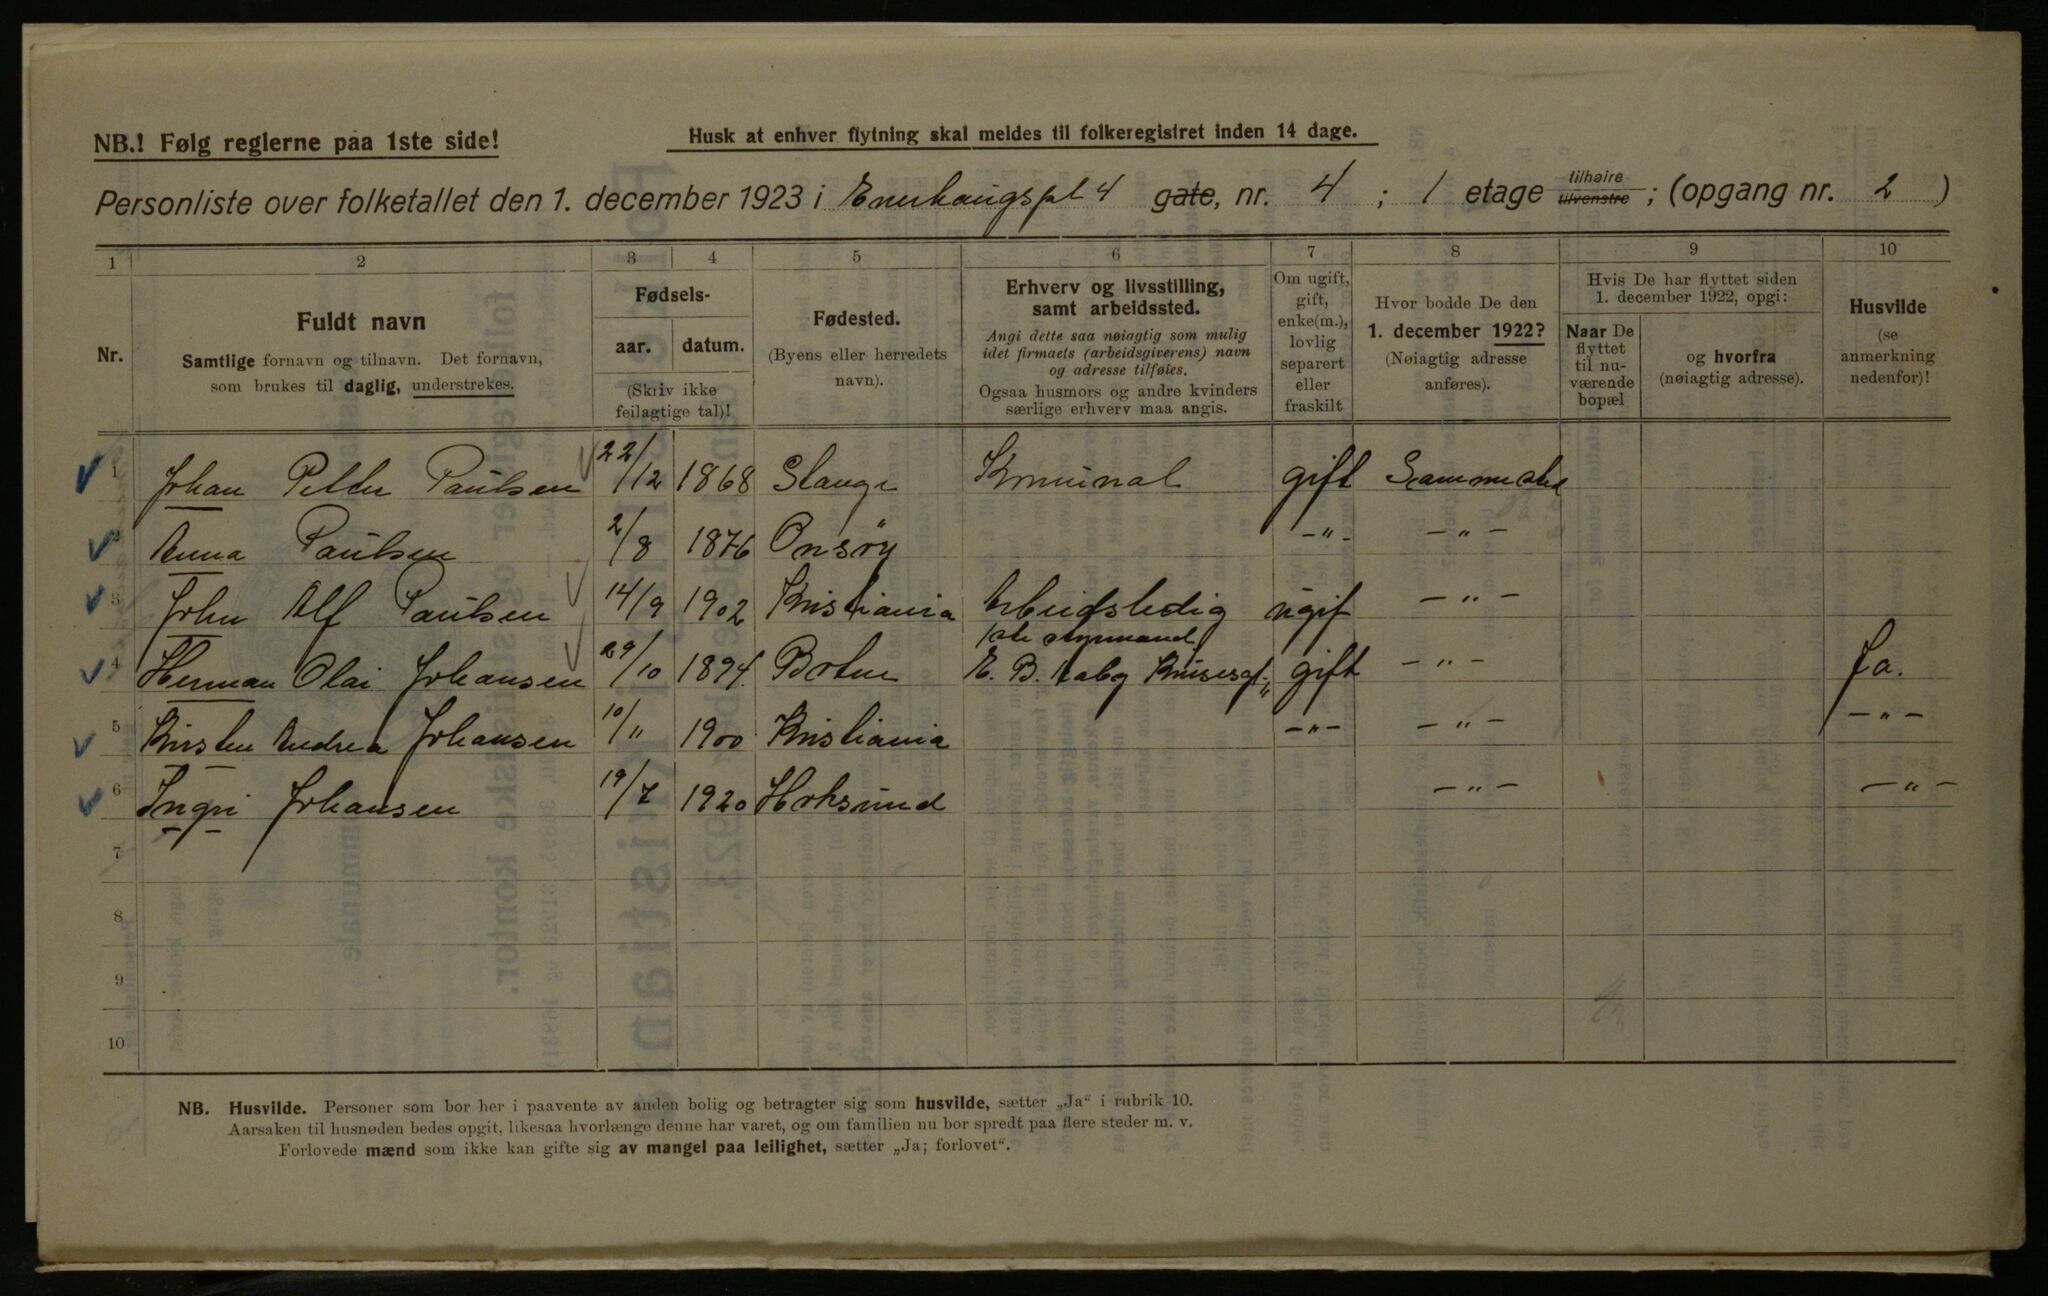 NB.! Følg reglerne paa 1ste side!
Husk at enhver flytning skal meldes til folkeregistret inden 14 dage.
Personliste over folketallet den 1. december 1923 i Enerhaugspl 4 gate, nr. 4 ; 1 etage tilhøire tilvenstre ; (opgang nr. 2 )
1 2 3 4 5 6 7 8 9 10
Nr.
Fuldt navn
Samtlige fornavn og tilnavn. Det fornavn,
som brukes til daglig, understrekes.
Fødsels-
aar. datum.
(Skriv ikke
feilagtige tal)!
Fødested.
(Byens eller herredets
navn).
Erhverv og livsstilling,
samt arbeidssted.
Angi dette saa nøiagtig som mulig
idet firmaets (arbeidsgiverens) navn
og adresse tilføies.
Ogsaa husmors og andre kvinders
særlige erhverv maa angis.
Om ugift,
gift,
enke(m.),
lovlig
separert
eller
fraskilt
Hvor bodde De den
1. december 1922?
(Nøiagtig adresse
anføres).
Hvis De har flyttet siden
1. december 1922, opgi:
Naar De
flyttet
til nu-
værende
bopæl
og hvorfra
(nøiagtig adresse).
Husvilde
(se
anmerkning
nedenfor)!
1 Johan Petter Paulsen 22/12 1868 Stange gift
2 Anna Paulsen 2/8 1876 Onsöy -"- -"-
3 John Alf Paulsen 14/9 1902 Kristiania Arbeidsledig ugif -"-
4 Herman Olai Johansen 29/10 1894 E. B. gift -"- Ja.
5 Kirsten Andrea Johansen 10/11 1900 Kristiania -"- -"- -"-
6 Ingri Johansen 19/7 1920 Hoksund -"- -"-
7
8
9
10
NB. Husvilde. Personer som bor her i paavente av anden bolig og betragter sig som husvilde, sætter „Ja“ i rubrik 10.
Aarsaken til husnøden bedes opgit, likesaa hvorlænge denne har varet, og om familien nu bor spredt paa flere steder m. v.
Forlovede mænd som ikke kan gifte sig av mangel paa leilighet, sætter „Ja; forlovet“.